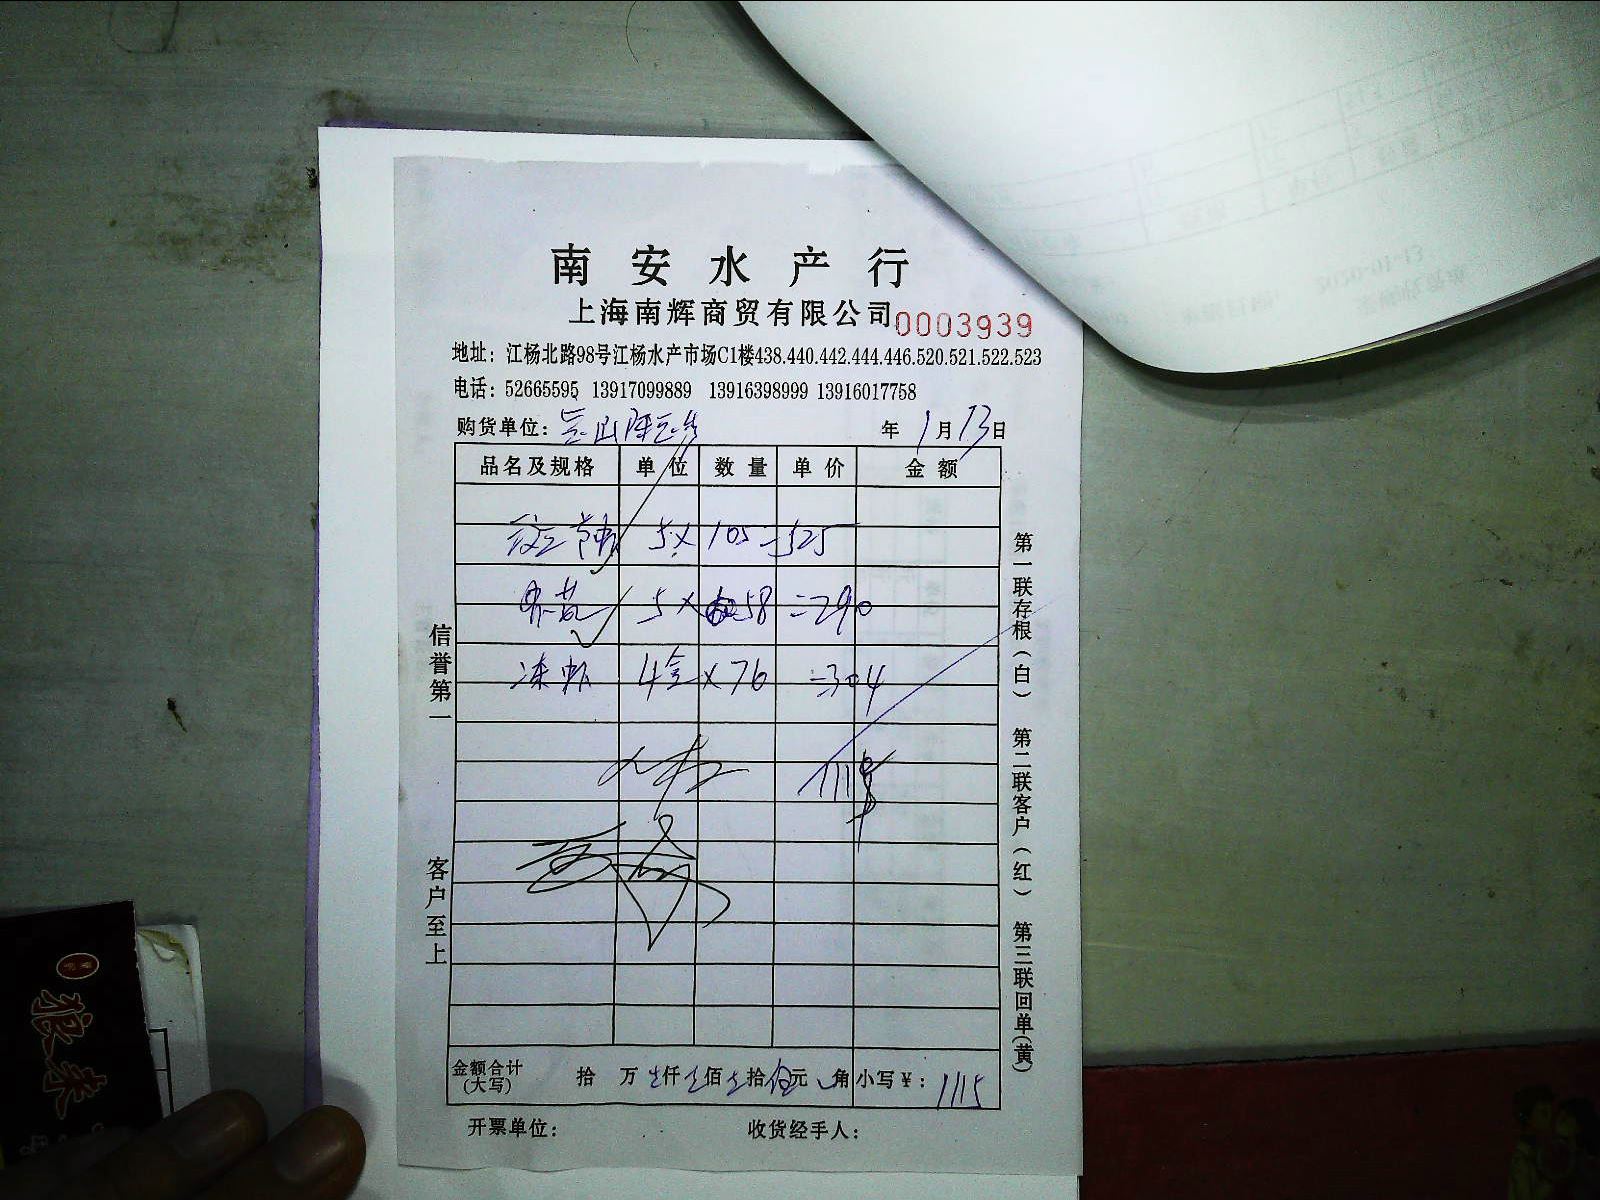 南安水产行
上海南辉商贸有限公司 0003939
地址：江杨北路98号江杨水产市场C1楼438.440.442.444.446.520.521.522.523
电话：52665595 13917099889 13916398999 13916017758
购货单位： 年 1月13日
品名及规格 单位 数量 单价 金额
5×105=525
5×58=290
冻虾 4盒×76=304
1115
信誉第一
客户至上
第一联存根（白） 第二联客户（红） 第三联回单(黄)
金额合计(大写) 拾 万 仟 佰 拾 伍元 角 小写￥：1115
开票单位： 收货经手人：